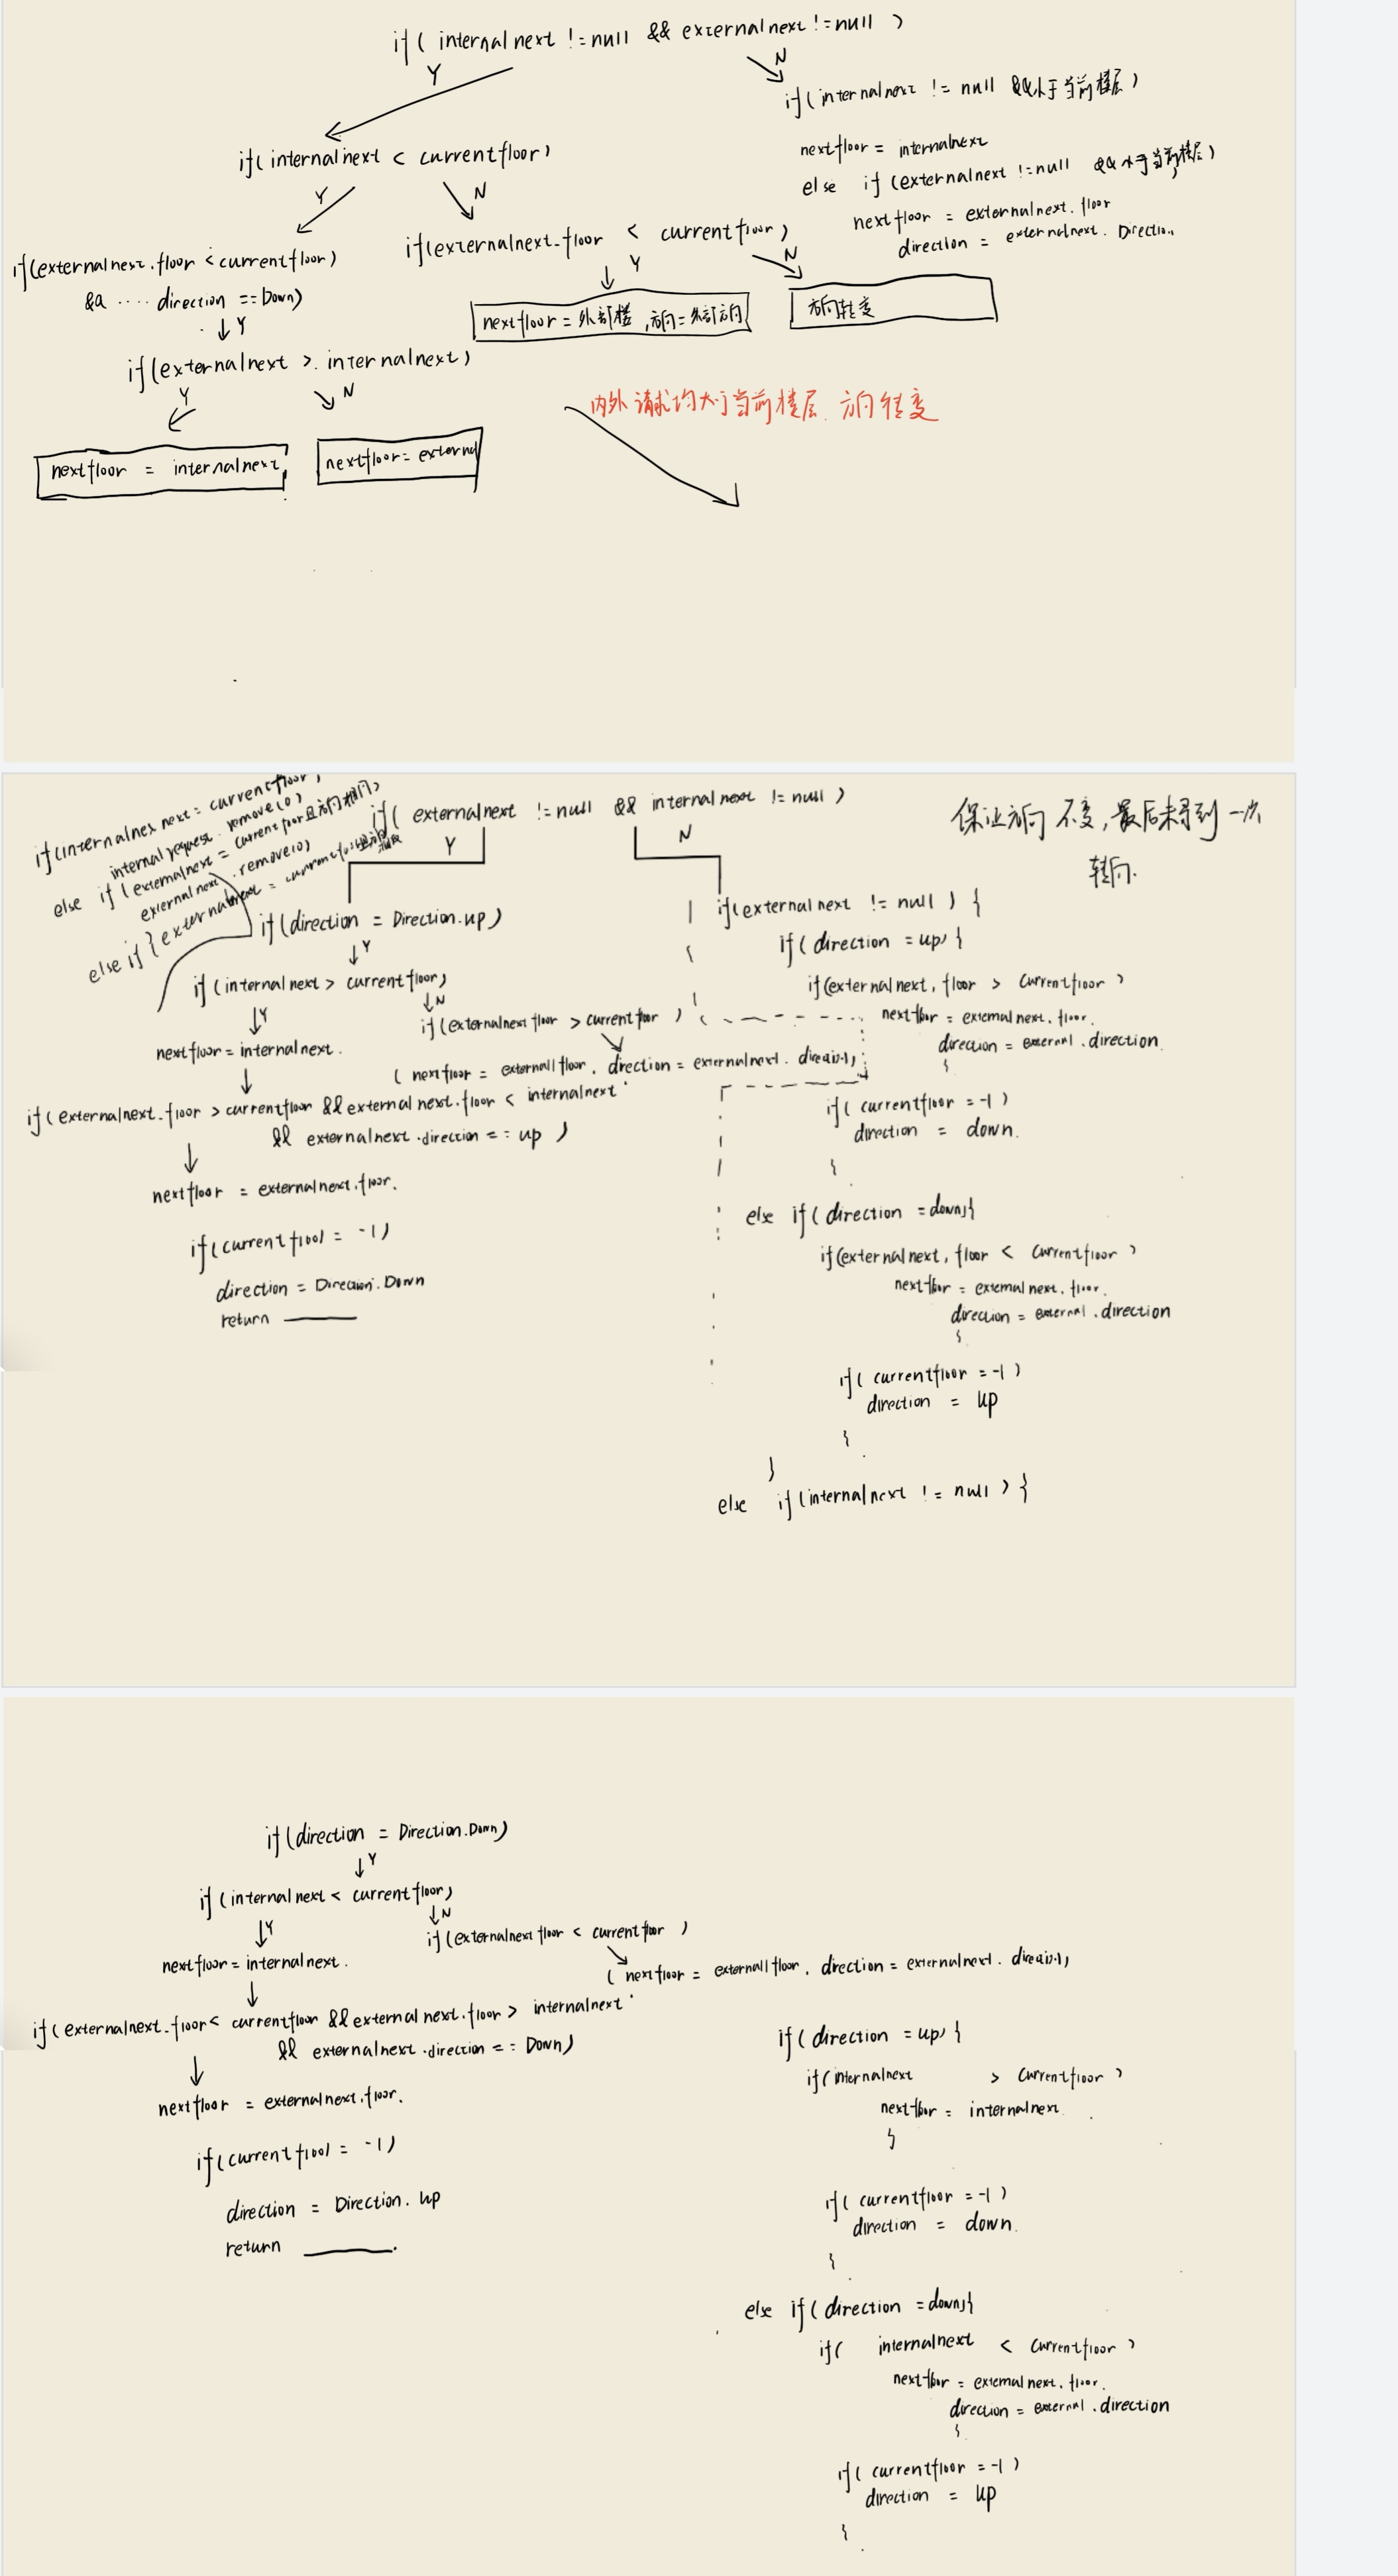 if( internalnext !=null && externalnext !=null )
Y
N
if(internalnext != null &&小于当前楼层)
nextfloor = internalnext
else if (externalnext !=null &&小于当前楼层)
nextfloor = externalnext. floor
direction = externalnext. Direction
if(internalnext < currentfloor)
Y
N
if(externalnext.floor < currentfloor)
&& .... direction ==Down)
if(externalnext.floor < currentfloor)
Y
N
↓Y
nextfloor = 外部楼 ,方向=外部方向
方向转变
if(externalnext > internalnext)
Y
N
nextfloor = internalnext
nextfloor= external
内外请求均大于当前楼层 方向转变
if(internalnex next = currentfloor)
internal request. remove(0)
else if (externalnext = currentfloor且方向相同)
externalnext .remove(0)
else if { externalnext = currentfloor
if( externalnext !=null && internalnext !=null )
Y
N
保证方向 不变,最后未寻到 一次
转向.
if(direction = Direction.up)
↓Y
if(internalnext > currentfloor)
↓Y
↓N
nextfloor=internalnext.
if(externalnext floor > currentfloor )
( nextfloor = externall floor. direction = externalnext. direction,
if(externalnext.floor >currentfloor &&externalnext.floor < internalnext
&& externalnext.direction == up )
nextfloor = externalnext.floor.
if(currentfloor = -1)
direction = Direction.Down
return
if(externalnext != null ) {
if( direction =up) {
if(externalnext, floor > currentfloor )
nextfloor = externalnext. floor.
direction = external .direction
}
if( currentfloor =-1)
direction = down.
}
else if( direction =down){
if(externalnext, floor < currentfloor )
nextfloor = externalnext. floor.
direction = external .direction
}
if( currentfloor =-1)
direction = up
}
}
else if(internalnext != null ) {
if(direction = Direction.Down)
↓Y
if(internalnext < currentfloor)
↓Y
↓N
nextfloor=internalnext.
if(externalnext floor < currentfloor )
( nextfloor = externall floor. direction = externalnext. direction,
if(externalnext.floor< currentfloor &&externalnext.floor > internalnext
&& externalnext.direction == Down)
nextfloor = externalnext.floor.
if(currentfloor = -1)
direction = Direction. up
return
if( direction =up) {
if(internalnext > currentfloor )
nextfloor = internalnext
}
if( currentfloor =-1)
direction = down.
}
else if( direction =down){
if( internalnext < currentfloor )
nextfloor = externalnext. floor.
direction = external .direction
}
if( currentfloor =-1)
direction = up
}